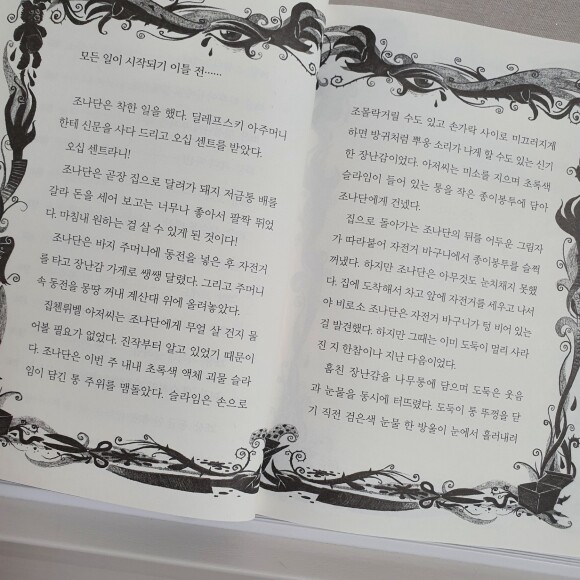 모든 일이 시작되기 이틀 전……
조나단은 착한 일을 했다. 딜레프스키 아주머니
한테 신문을 사다 드리고 오십 센트를 받았다.
오십 센트라니!
조나단은 곧장 집으로 달려가 돼지 저금통 배를
갈라 돈을 세어 보고는 너무나 좋아서 팔짝 뛰었
다. 마침내 원하는 걸 살 수 있게 된 것이다!
조나단은 바지 주머니에 동전을 넣은 후 자전거
를 타고 장난감 가게로 쌩쌩 달렸다. 그리고 주머니
속 동전을 몽땅 꺼내 계산대 위에 올려놓았다.
집첸뤼벨 아저씨는 조나단에게 무얼 살 건지 물
어볼 필요가 없었다. 진작부터 알고 있었기 때문이
다. 조나단은 이번 주 내내 초록색 액체 괴물 슬라
임이 담긴 통 주위를 맴돌았다. 슬라임은 손으로
조물락거릴 수도 있고 손가락 사이로 미끄러지게
하면 방귀처럼 뿌웅 소리가 나게 할 수도 있는 신기
한 장난감이었다. 아저씨는 미소를 지으며 초록색
슬라임이 들어 있는 통을 작은 종이봉투에 담아
조나단에게 건넸다.
집으로 돌아가는 조나단의 뒤를 어두운 그림자
가 따라붙어 자전거 바구니에서 종이봉투를 슬쩍
꺼냈다. 하지만 조나단은 아무것도 눈치채지 못했
다. 집에 도착해서 차고 앞에 자전거를 세우고 나서
야 비로소 조나단은 자전거 바구니가 텅 비어 있는
걸 발견했다. 하지만 그때는 이미 도둑이 멀리 사라
진 지 한참이나 지난 다음이었다.
훔친 장난감을 나무통에 담으며 도둑은 웃음
과 눈물을 동시에 터뜨렸다. 도둑이 통 뚜껑을 닫
기 직전 검은색 눈물 한 방울이 눈에서 흘러내려